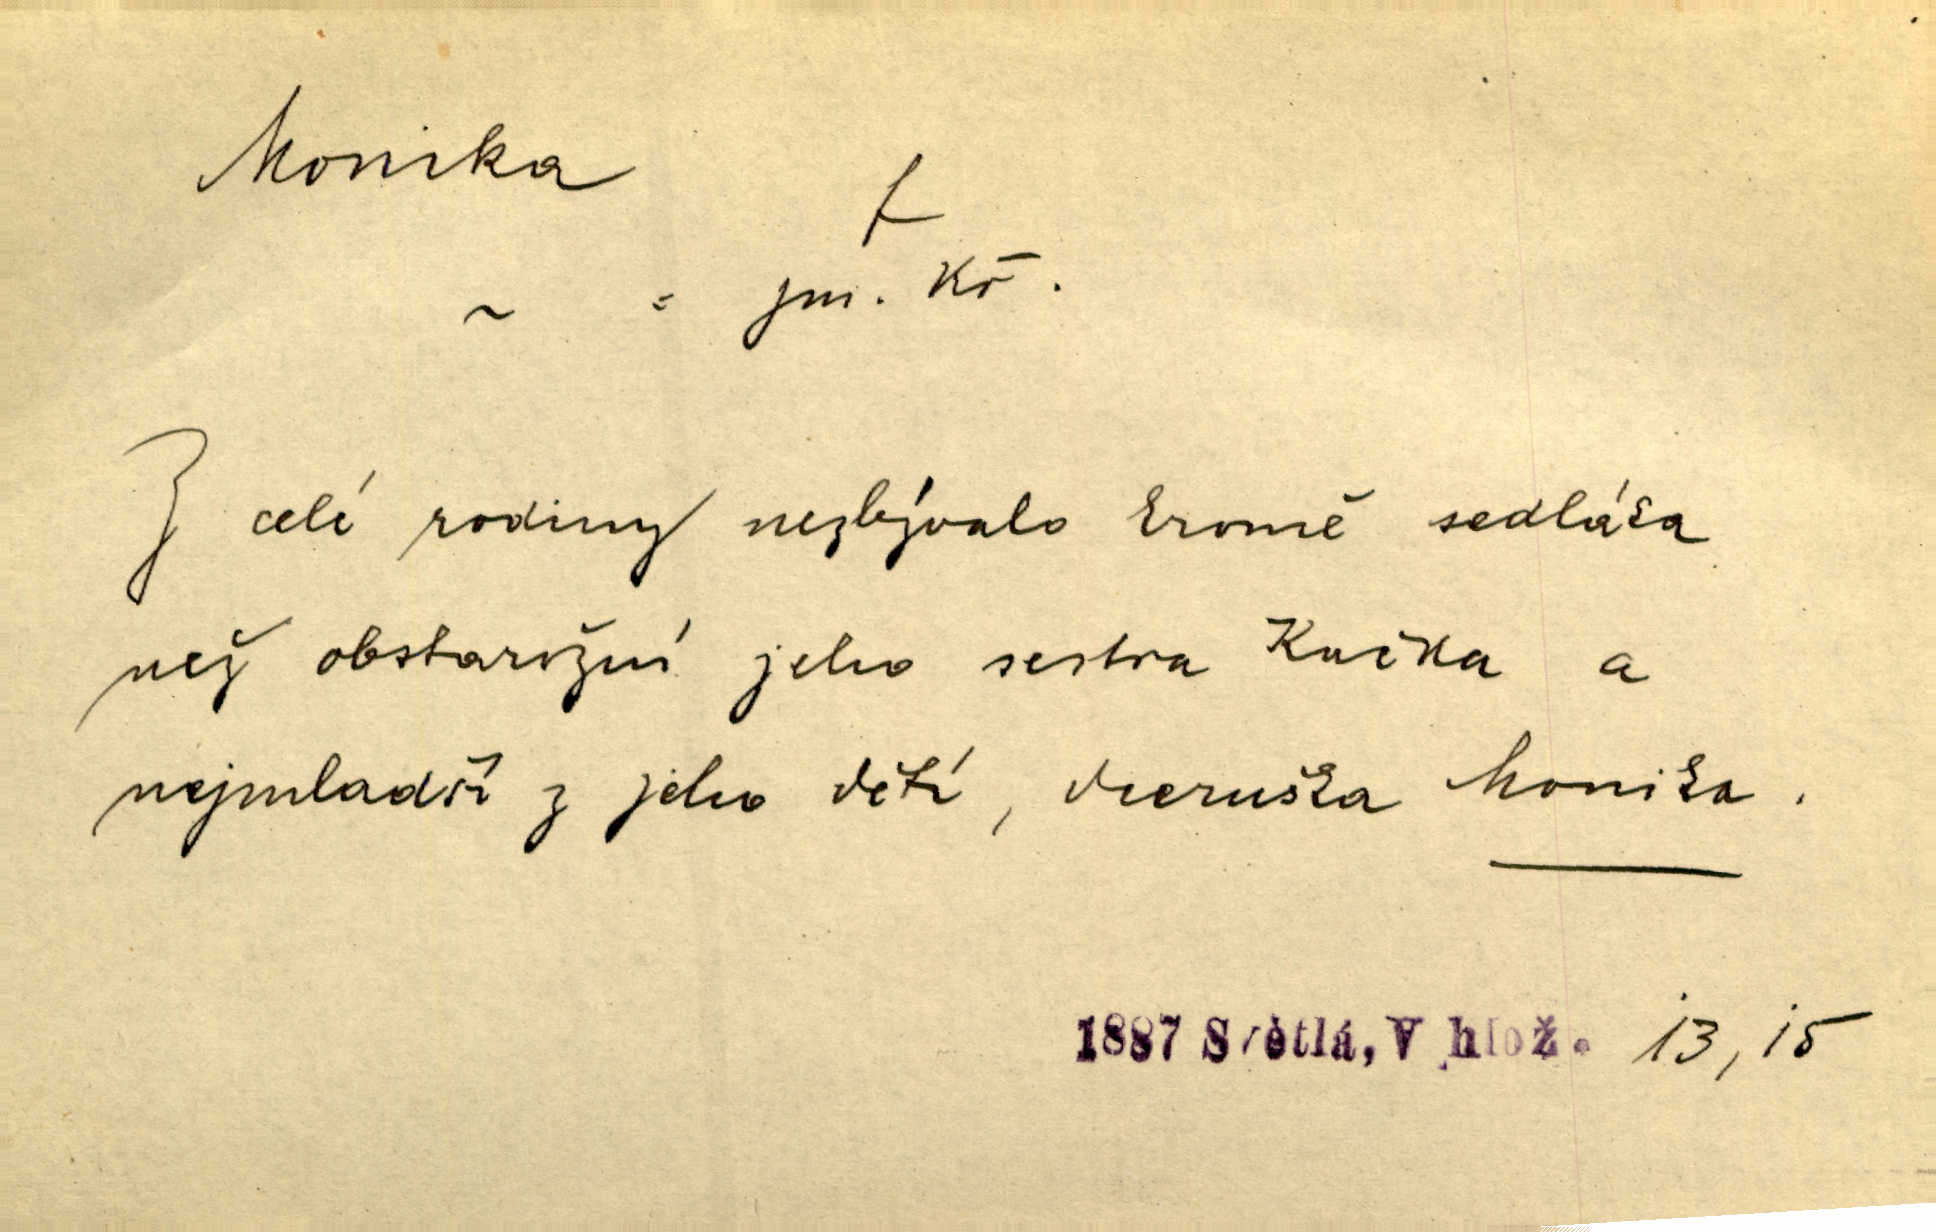 Monika
f
~ = jm. Kř.
Z celé rodiny nezbývalo kromě sedláka
než obstarožní jeho sestra Kačka a
nejmladší z jeho dětí, dceruška Monika.
1887 Světlá, V hlož. 13, 15